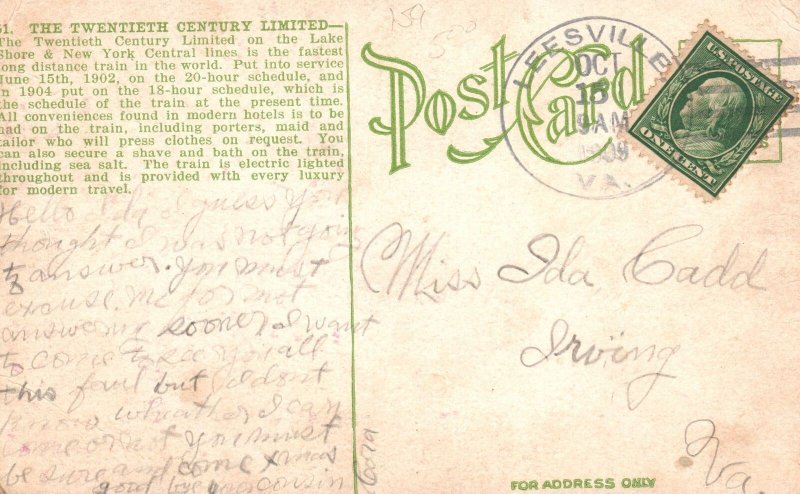 51. THE TWENTIETH CENTURY LIMITED—
The Twentieth Century Limited on the Lake
Shore & New York Central lines is the fastest
long distance train in the world. Put into service
June 15th, 1902, on the 20-hour schedule, and
in 1904 put on the 18-hour schedule, which is
the schedule of the train at the present time.
All conveniences found in modern hotels is to be
had on the train, including porters, maid and
tailor who will press clothes on request. You
can also secure a shave and bath on the train,
including sea salt. The train is electric lighted
throughout and is provided with every luxury
for modern travel.
Hello Ida I guess you
thought I was not going
to answer. you must
excuse me for not
answering sooner I want
to come to see you all
this faul but I dont
know wheather I can
come or not you must
be sure and come xmas
good bye your cousin
Cora
Post Card
LEESVILLE
OCT
15
9AM
1909
VA.
U.S. POSTAGE
ONE CENT
Miss Ida Cadd
Irving
Va.
FOR ADDRESS ONLY